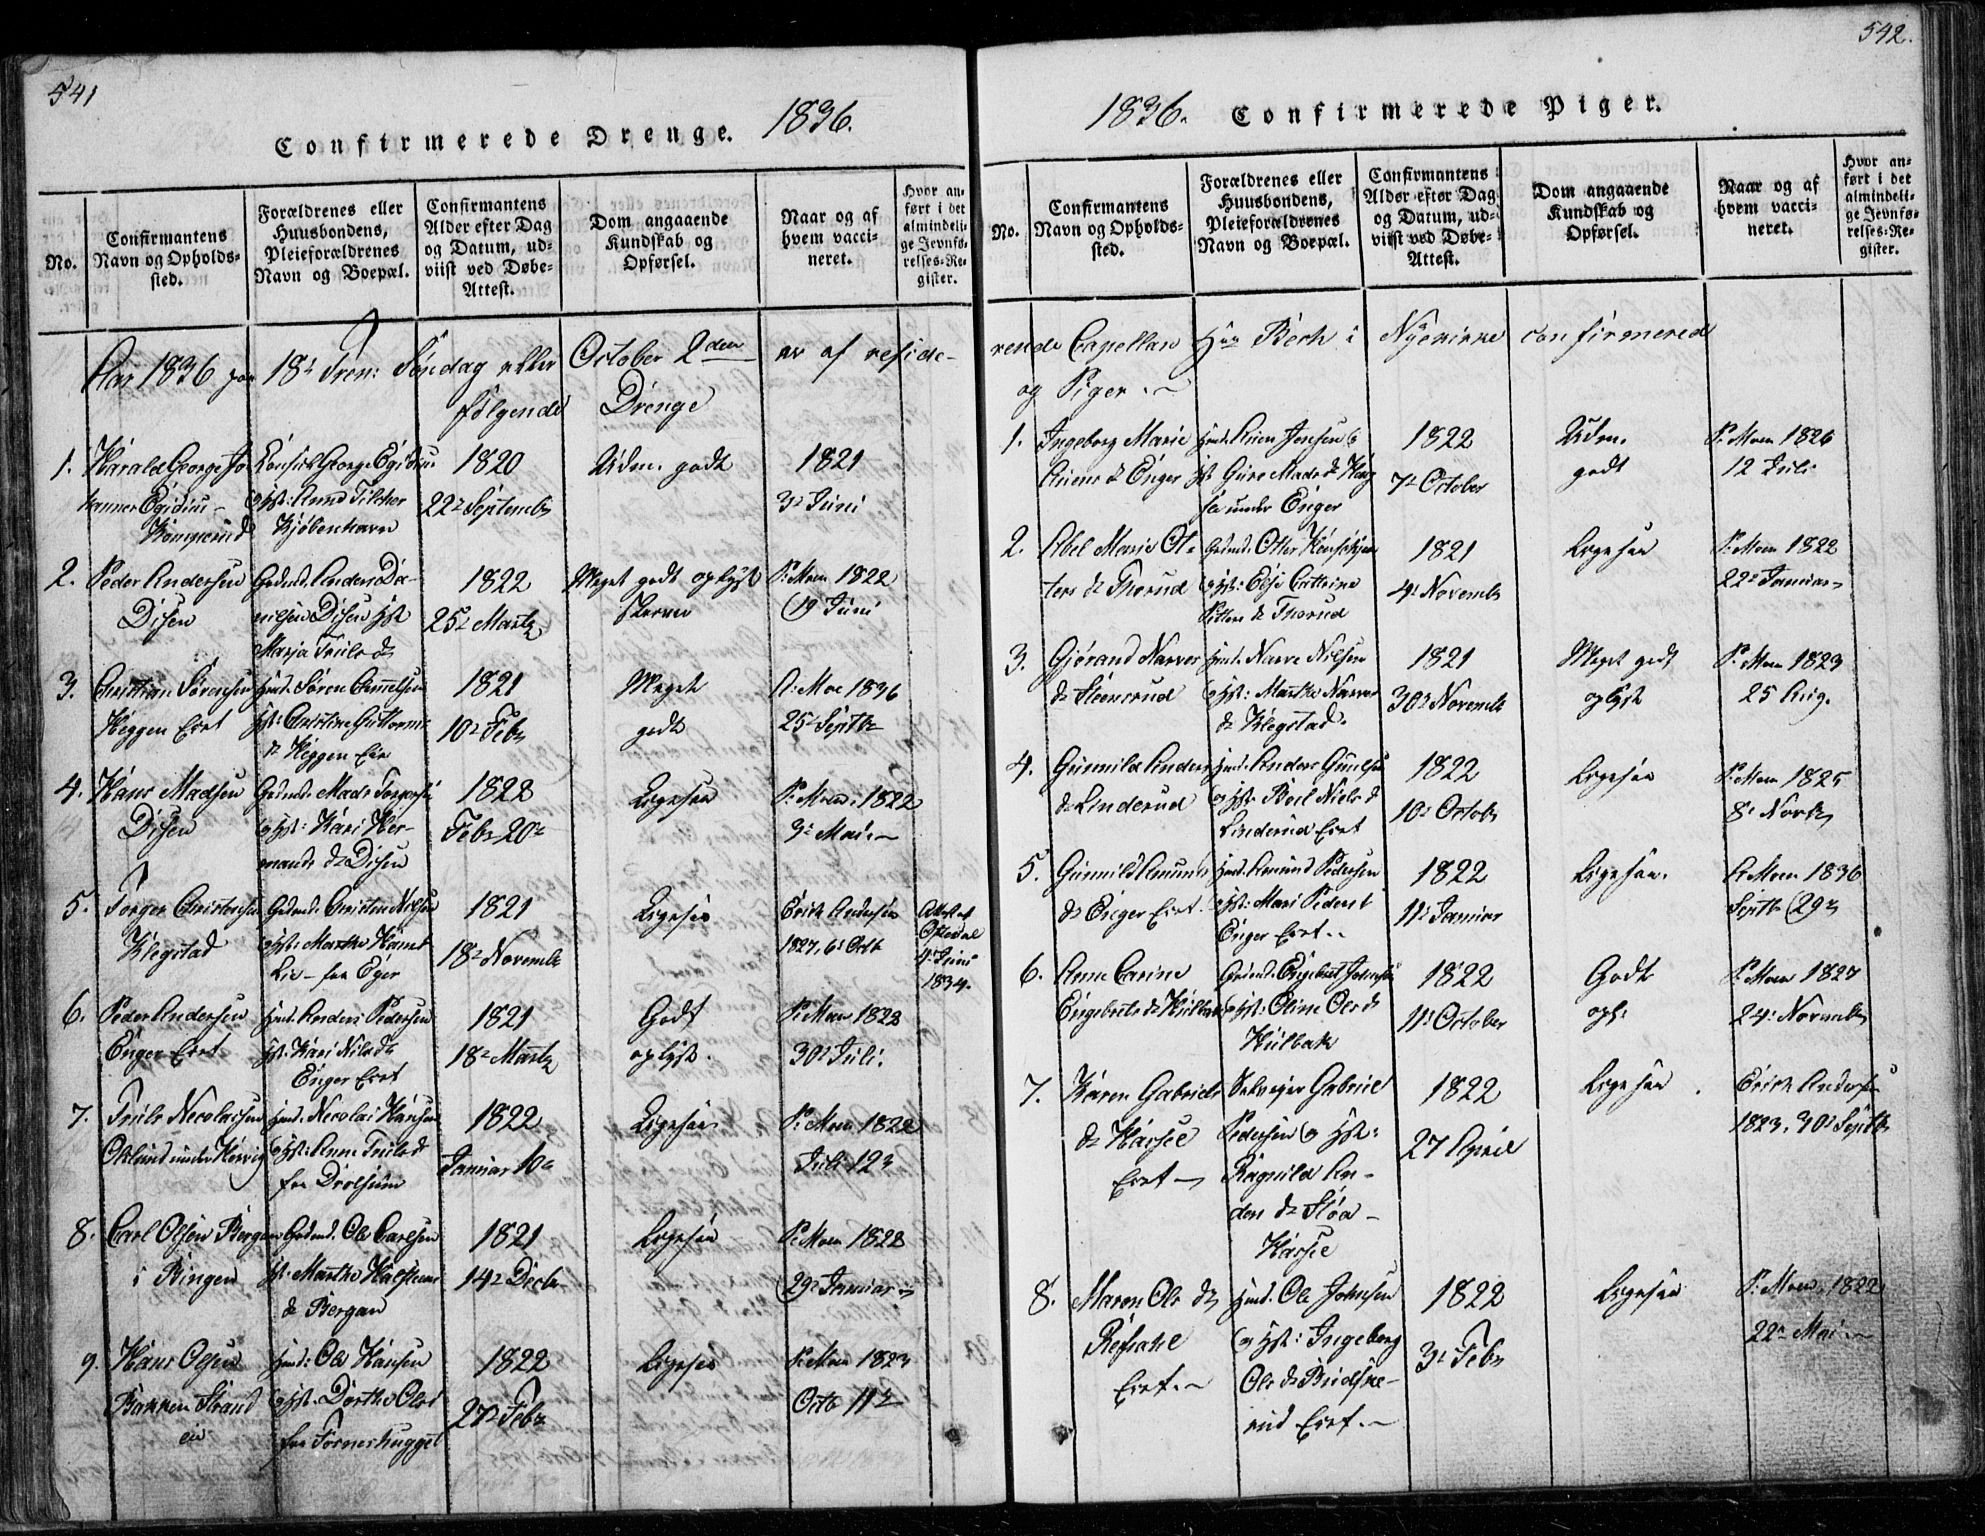 541
Confirmerede Drenge. 1836.
No.
Confirmantens
Navn og Opholds-
sted.
Forældrenes eller
Huusbondens,
Pleieforældrenes
Navn og Boepæl.
Confirmantens
Alder efter Dag
og Datum, ud-
viist ved Døbe-
Attest.
Dom angaaende
Kundskab og
Opførsel.
Naar og af
hvem vacci-
neret.
Hvor an-
ført i det
almindeli-
ge Jevnfø-
relses-Re-
gister.
Aar 1836 paa 18de Tren: Søndag eller October 2den er af reside-
følgende Drenge
1. Harald George Jo
hannes Egidius
Consul George Egidius
Hst: Anna
Kjøbenhavn
1820
22de Septembr
Uden. godt
1821
3de Juni
2. Peder Andersen
Disen
Gdmd. Anders Da-
nielsen Disen Hst
Marja Truls dr
1822
25de Martz
Meget godt oplyst
P. Moen 1822
19 Juni
3. Christian Sørensen
Heggen Eiet
Hmd. Søren
Hst: Christine Guttorms
dr Heggen Eie
1821
10de Febr
Meget
godt
P. Moe 1836
25de Septbr
4. Hans Madsen
Disen
Gdmd. Mads Torgersen
og Hst: Kari Her-
mands dr Disen
1822
Febr 20de
Ligesaa
P. Moen 1822
3de Mai
5. Torger Christensen
Klegstad
Gdmd. Christen Nilsen
Hst: Marthe Hans
fra Eger
1821
18de Novembr
Ligesaa
Erich Andersen
1827, 6de Octb
Attest af
4de Juni
1834.
6. Peder Andersen
Enger Eiet
Hmd. Anders Pedersen
Hst: Kari Nils dr
Enger Eiet
1821
18de Martz
Godt
oplyst.
P. Moen 1822
30de Juli.
7. Truls Nicolaisen
under
Hmd. Nicolai Hansen
og Hst: Anne Truls dr
fra Drolsum
1822
Januar 10de
Ligesaa
P. Moen 1822
Juli 12te
8. Carl Olsen Bergan
i Bingen
Gdmd. Ole Carlsen
Hst: Marthe Halsteens
dr Bergan
1821
14de Decbr
Ligesaa
P. Moen 1822
29de Januar
9. Hans Olsen
Bakken Strand
eie
Hmd: Ole Hansen
og Hst. Dorthe Ols
fra Torneshugget
1822
27de Febr
Ligesaa
P. Moen 1823
Octb 11te
542.
1836. Confirmerede Piger.
No.
Confirmantens
Navn og Opholds-
sted.
Forældrenes eller
Huusbondens,
Pleieforældrenes
Navn og Boepæl.
Confirmantens
Alder efter Dag
og Datum, ud-
viist ved Døbe-
Attest.
Dom angaaende
Kundskab og
Opførsel.
Naar og af
hvem vacci-
neret.
Hvor an-
ført i det
almindeli-
ge Jevnfø-
relses-Re-
gister.
rende Capellan Hrr Bech i Nykirke confirmered
og Piger.
1. Ingeborg Marie
Enger
Jensen og
Hst: Gure Mads dr
under Enger
1822
7de October
Uden.
godt
P. Moen 1826
12 Juli
2. Abel Marie Ot-
ters dr Thorud
Gdmd. Otter
og Hst: Else Cathrine
Thorud
1821
4de Novembr
Ligesaa
P. Moen 1822
22de Januar
3. Gjørand Narves
dr Steensrud
Hmd. Narve Nilsen
og Hst: Marthe Narves
dr Klegstad.
1821
30de Novembr
Meget godt
oplyst
P. Moen 1823
25 Aug.
4. Gunnild Anders
dr Linderud
Hmd. Anders
og Hst: Beil Niels dr
Linderud Eiet
1822
10de Octobr
Ligesaa
P. Moen 1825
8de Novbr
5. Gunnild Amunds
dr Enger Eiet.
Hmd. Amund Pedersen
Hst: Mari Peders
Enger Eiet.
1822
11te Januar
Ligesaa.
P. Moen 1836
Septbr 29de
6. Anne Carine
Engebrets dr Hulbak
Gdmd. Engebret Johnsen
og Hst: Oline Ols dr
Hulbak
1822
11te October
Godt
opl.
P. Moen 1827
24de Novembr
7. Karen Gabriels
dr Hassel
Eiet
Selveier Gabriel
Pedersen og Hst:
Ragnild An-
ders dr
Hassel
1822
27 April
Ligesaa
Erich Andersen
1823, 30de Septbr
8. Maren Ols dr
Refsahl
Eiet.
Hmd. Ole Johnsen
og Hst: Ingeborg
Ols dr Budske-
rud Eiet.
1822
3de Febr
Ligesaa
P. Moen, 1822
22de Mai